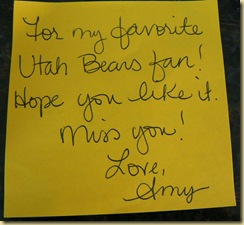 For my favorite
Utah Bears fan!
Hope you like it.
Miss you!
Love,
Amy